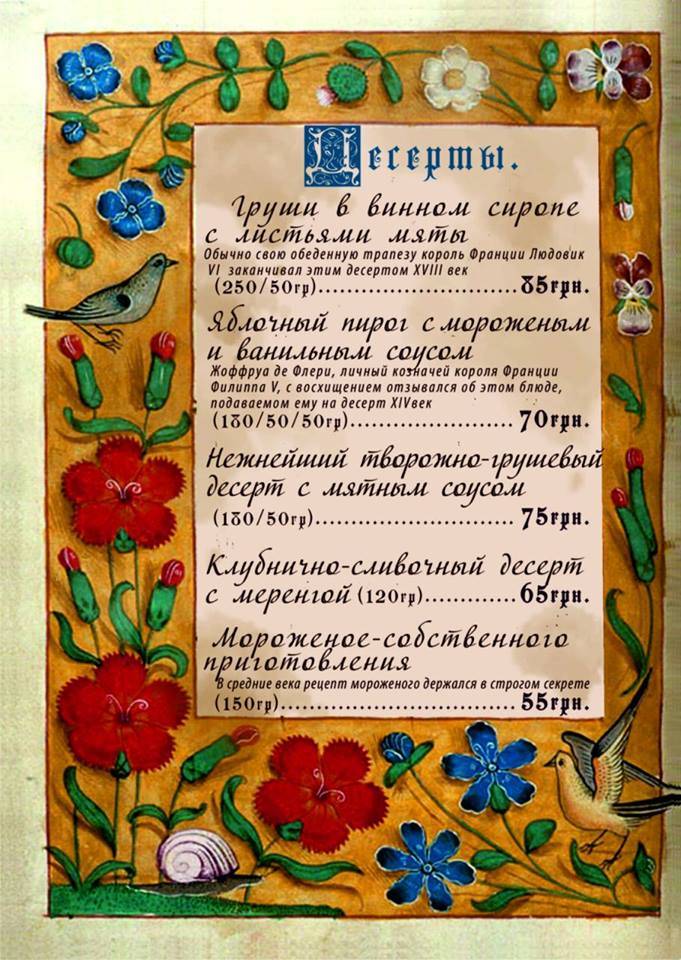 Десерты.
Груши в винном сиропе
с листьями мяты
Обычно свою обеденную трапезу король Франции Людовик
VI заканчивал этим десертом XVIII век
(250/50гр)..............................85грн.
Яблочный пирог с мороженым
и ванильным соусом
Жоффруа де Флери, личный козначей короля Франции
Филиппа V, с восхищением отзывался об этом блюде,
подаваемом ему на десерт XIVвек
(180/50/50гр)........................70грн.
Нежнейший творожно-грушевый
десерт с мятным соусом
(180/50гр).............................75грн.
Клубнично-сливочный десерт
с меренгой (120гр).............65грн.
Мороженое-собственного
приготовления
В средние века рецепт мороженого держался в строгом секрете
(150гр)..................................55грн.